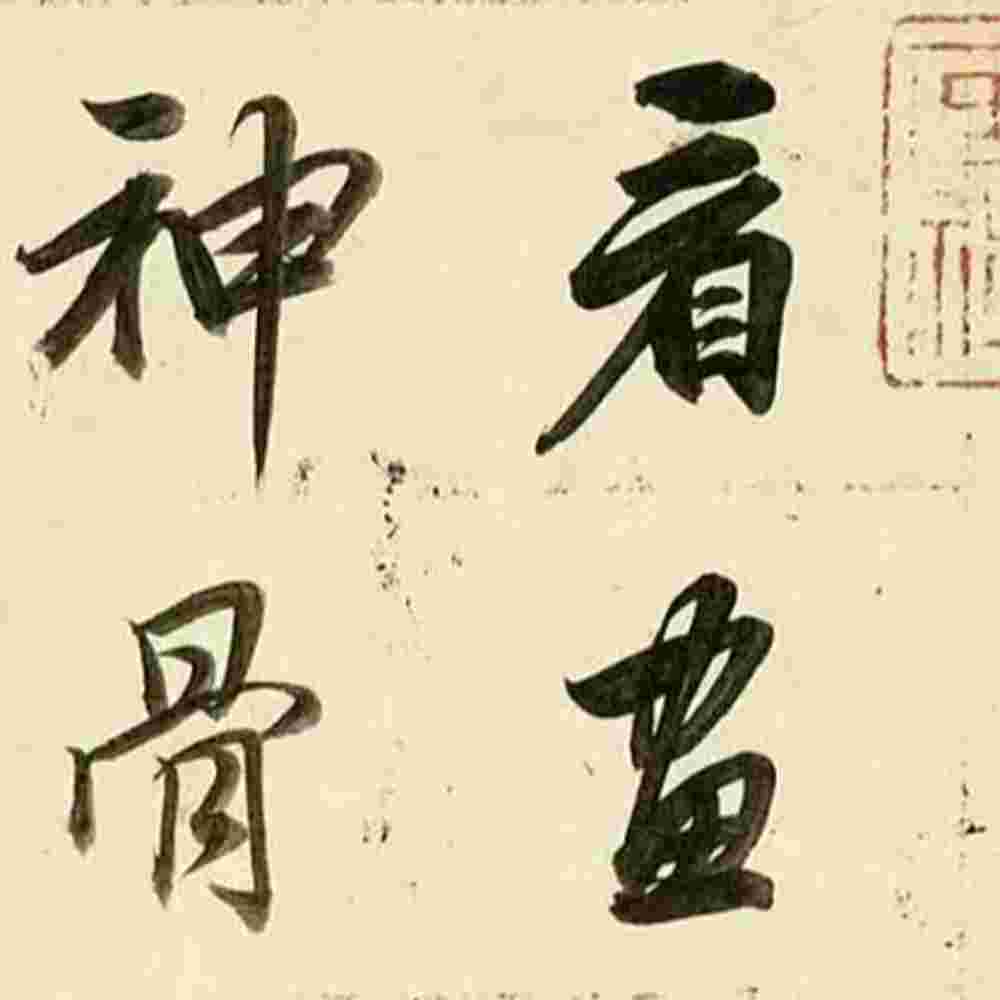 看畫
神骨